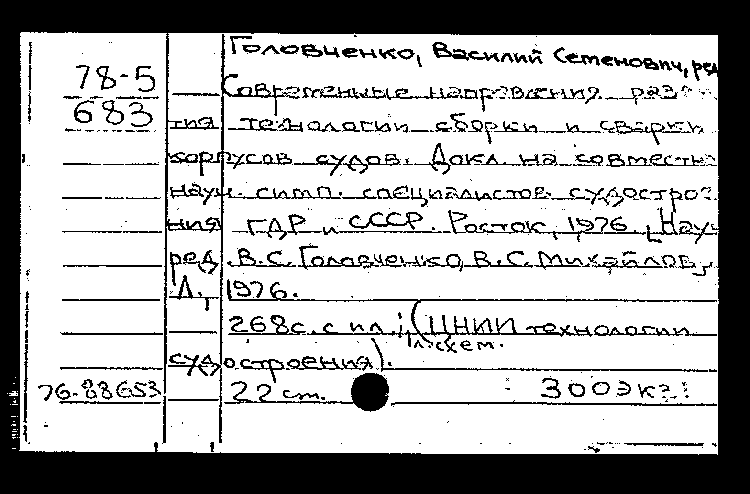 Головченко, Василий Семенович, ред
78-5
683
Современные направления разв
тия технологии сборки и сварки
корпусов судов. Докл. на совместн
науч. симп. специалистов судострое
ния ГДР и СССР. Росток, 1976. [Науч
ред. В.С. Головченко, В.С. Михайлов]
Л., 1976.
268с. с ил.; (ЦНИИ технологии
1л.схем.
судостроения).
76-88653 22 см. 300экз.